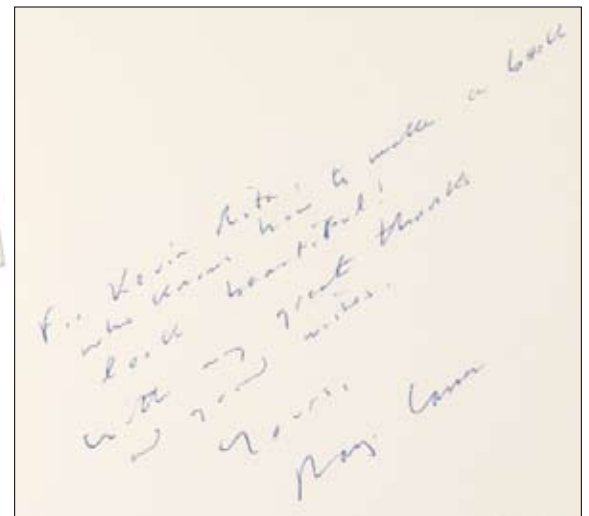 For Kevin
who knows how to make a book
look beautiful!
with my great thanks
and good wishes.
Yours,